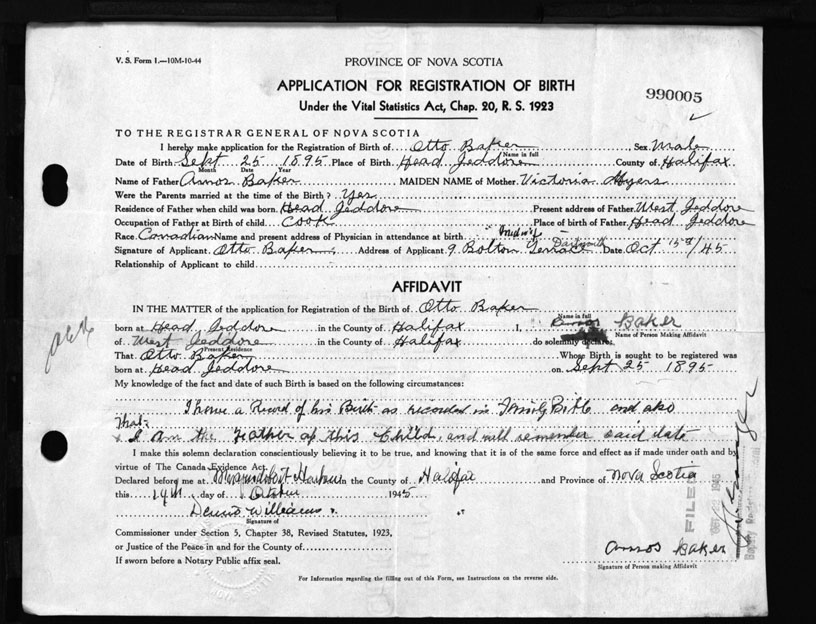 V. S. Form 1.—10M-10-44
PROVINCE OF NOVA SCOTIA
APPLICATION FOR REGISTRATION OF BIRTH
Under the Vital Statistics Act, Chap. 20, R. S. 1923
990005
TO THE REGISTRAR GENERAL OF NOVA SCOTIA
I hereby make application for the Registration of Birth of Otto Baker, Sex Male
Name in full
Date of Birth Sept 25 1895 Place of Birth Head Jeddore County of Halifax
Month Date Year
Name of Father Amos Baker MAIDEN NAME of Mother Victoria Myers
Were the Parents married at the time of the Birth? Yes
Residence of Father when child was born. Head Jeddore Present address of Father. West Jeddore
Occupation of Father at Birth of child. Cook Place of birth of Father. Head Jeddore
Race. Canadian Name and present address of Physician in attendance at birth.
Signature of Applicant. Otto Baker Address of Applicant. 9 Bolton Terrace Dartmouth Date Oct 15th/45
Relationship of Applicant to child
AFFIDAVIT
IN THE MATTER of the application for Registration of the Birth of Otto Baker
Name in full
born at Head Jeddore in the County of Halifax I, Amos Baker
Name of Person Making Affidavit
of West Jeddore in the County of Halifax do solemnly declare:
Present Residence
That Otto Baker Whose Birth is sought to be registered was
born at Head Jeddore on Sept 25 1895
My knowledge of the fact and date of such Birth is based on the following circumstances:
I have a Record of his Birth as recorded in Family Bible and also
That
I am the Father of this Child, and will remember said date
I make this solemn declaration conscientiously believing it to be true, and knowing that it is of the same force and effect as if made under oath and by
virtue of The Canada Evidence Act.
Declared before me at Musquodoboit Harbour in the County of Halifax and Province of Nova Scotia
this 19th day of October 1945
Dennis Williams
Signature of
FILED
Commissioner under Section 5, Chapter 38, Revised Statutes, 1923,
or Justice of the Peace in and for the County of
If sworn before a Notary Public affix seal.
Amos Baker
Signature of Person making Affidavit
For Information regarding the filling out of this Form, see Instructions on the reverse side.